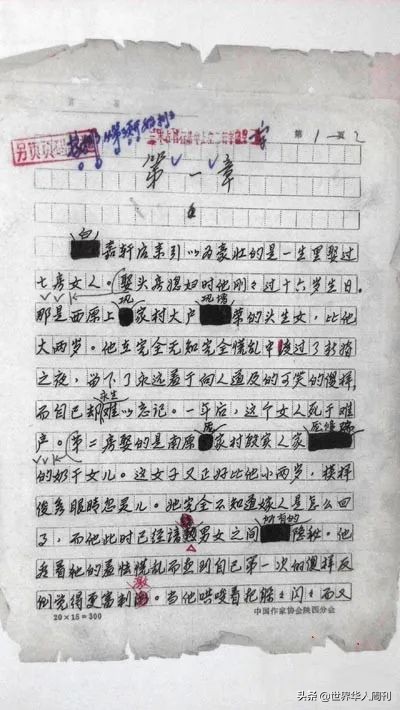 第 1 页 2
第一章
白嘉轩后来引以为豪壮的是一生里娶过
七房女人。娶头房媳妇时他刚々过十六岁生日。
那是西原上巩家村大户巩增荣的头生女，比他
大两岁。他在完全无知完全慌乱中度过了新婚
之夜，留下了永远羞于向人道及的可笑的傻样，
而自己却永生难以忘记。一年后，这个女人死于难
产。第二房娶的是南原庞家村殷实人家庞修瑞
的奶干女儿。这女子又正好比他小两岁，模样
俊秀眼睛忽灵儿。她完全不知道嫁人是怎么回
事，而他此时已经谙熟男女之间所有的隐秘。他
看着她的羞怯慌乱而想到自己第一次的傻样反
倒觉得更富刺激。当他哄唆着把躲々闪々而又
20×15=300 中国作家协会陕西分会
头条 @世界华人周刊